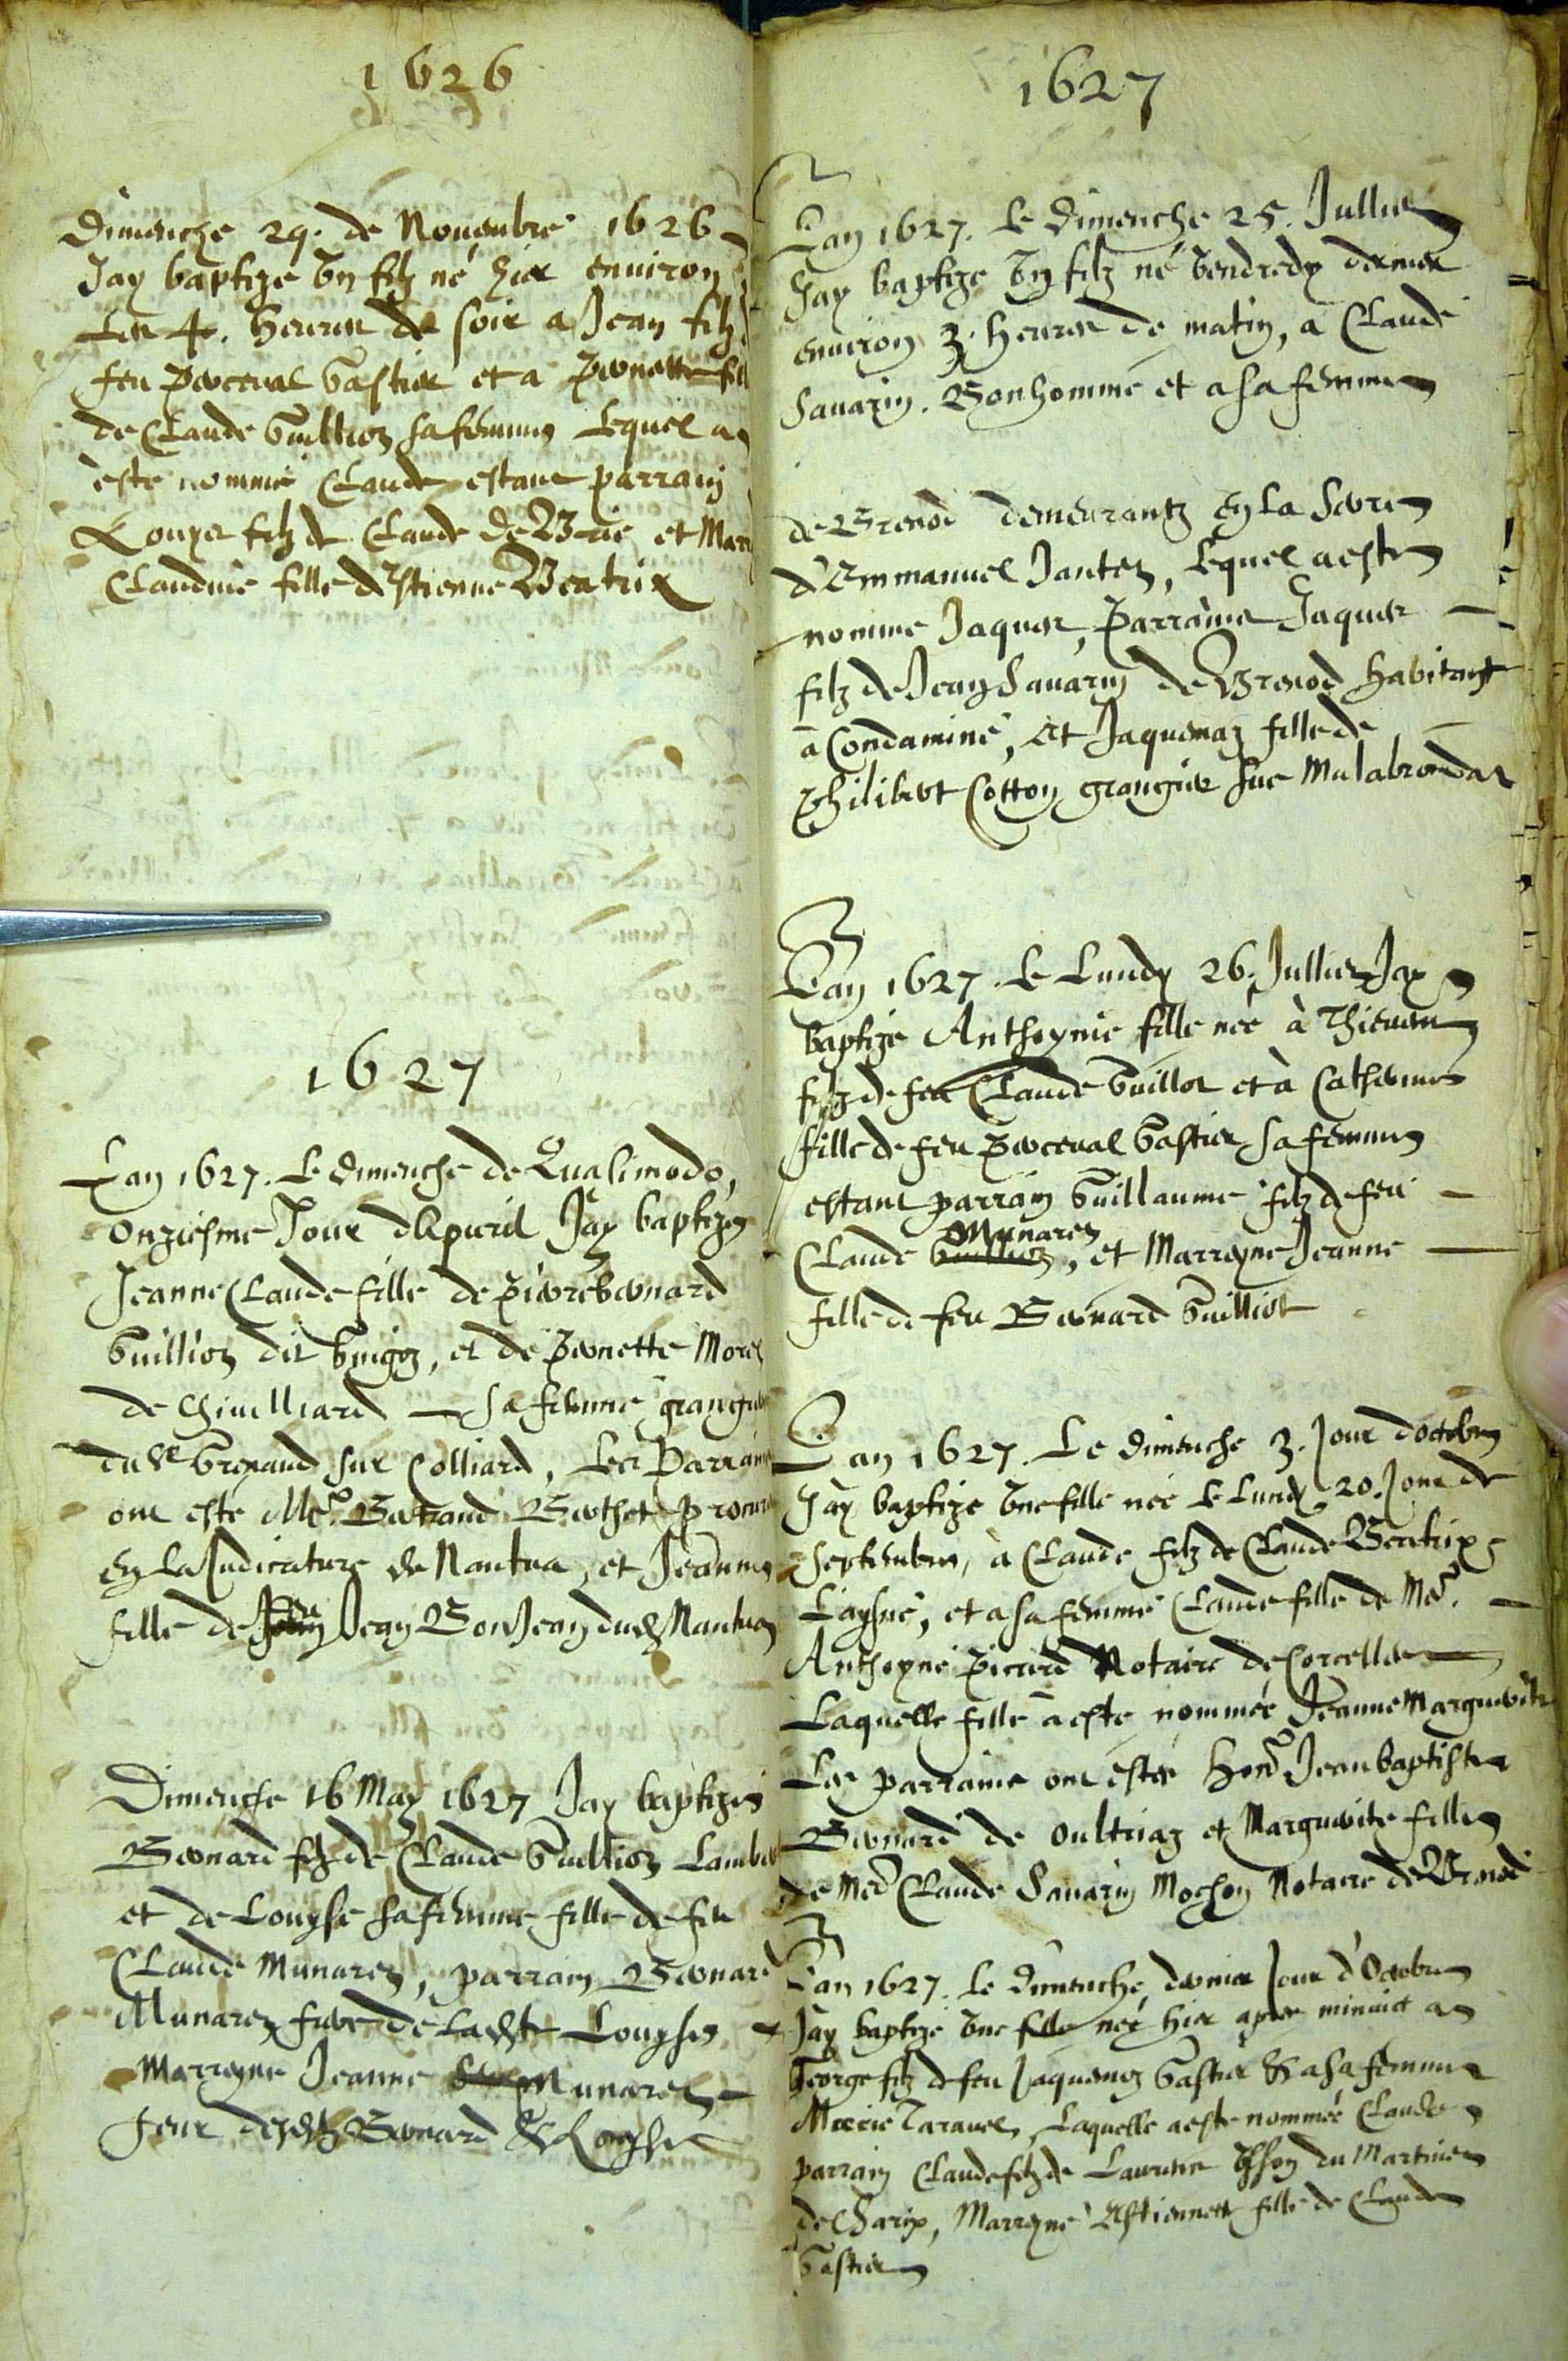 1626
Dimenche 29. de Nouembre 1626
Jay baptize Vn filz né hier enuiron
Les 4. heures de soir a Jean filz
feu Perceual Gastier et a Pernette fill
de Claude Guillion sa femme Lequel a
este nommé Claude estant parrain
Louys filz de Claude de Brie et Mar
Claudine fille dEstienne Beatrix
1627
Lan 1627. Le dimenche de Qualimodo,
Onziesme Jour dApuril Jay baptize
Jeanne Claude fille de Pierrebernard
Guillion dit Guigoz, et de Pernette Morel
de Chiuilliard sa femme grangier
du Sr Greyaud sur Colliard, Les Parrains
ont este Me. Bertrand Berthet procureur
en La Judicature de Nantua, et Jeanne
fille de feu Jean BonJean dud Nantua
Dimenche 16 May 1627 Jay baptize
Bernard filz de Claude Guillion Lambert
et de Louyse sa femme fille de feu
Claude Munarez, parrain Bernard
Munarez frere de Ladte Louyse
Marrayne Jeanne Munarez
seur desdtz Bernard & Louyse
1627
Lan 1627. Le dimenche 25. Jullier
Jay baptize Vn filz né Vendredy dernier
enuiron 3. heures de matin, a Claude
Sauarin. Bonhomme et a sa femme
de Brenod demeurantz en La Serre
d'Emmanuel Jantez, Lequel a este
nomme Jaques, Parrains Jaques
filz de Jean Sauarin de Brenod habitant
a Condamine, et Jaquemaz fille de
Philibert Cotton grangier sur Malabronde
Lan 1627. Le Lundy 26. Jullier Jay
baptize Anthoynie fille née à Thieuen
filz de feu Claude Guillot et à Catherine
fille de feu Perceual Gastier sa femme
estant parrain Guillaume filz de feu
Munarez
Claude Guillion, et Marrayne Jeanne
fille de feu Bernard Guilliot
Lan 1627. Le dimenche 3. Jour doctobre
Jay baptize Vne fille née Le Lundy 20. Jour de
septembre, à Claude filz de Claude Beatrix
L'aysné, et a sa femme Claude fille de Me.
Anthoyne Picard Notaire de Corcelles
Laquelle fille a este nommée JeanneMarguerite
Les parrains ont estés Hone Jeanbaptiste
Bernard de Oultriaz et Marguerite fille
de Me Claude Sauarin Mochon Notaire de Brenod
Lan 1627. Le dimenche dernier Jour d'Octobre
Jay baptize Vne fille née hier apres minuict a
George filz de feu Jaquemoz Gastier & a sa femme
Marie Tarauel, Laquelle a este nommée Claude
parrain Claude filz de Laurent du Martinet
de Charix, Marrayne Estiennette fille de Claude
Gastier